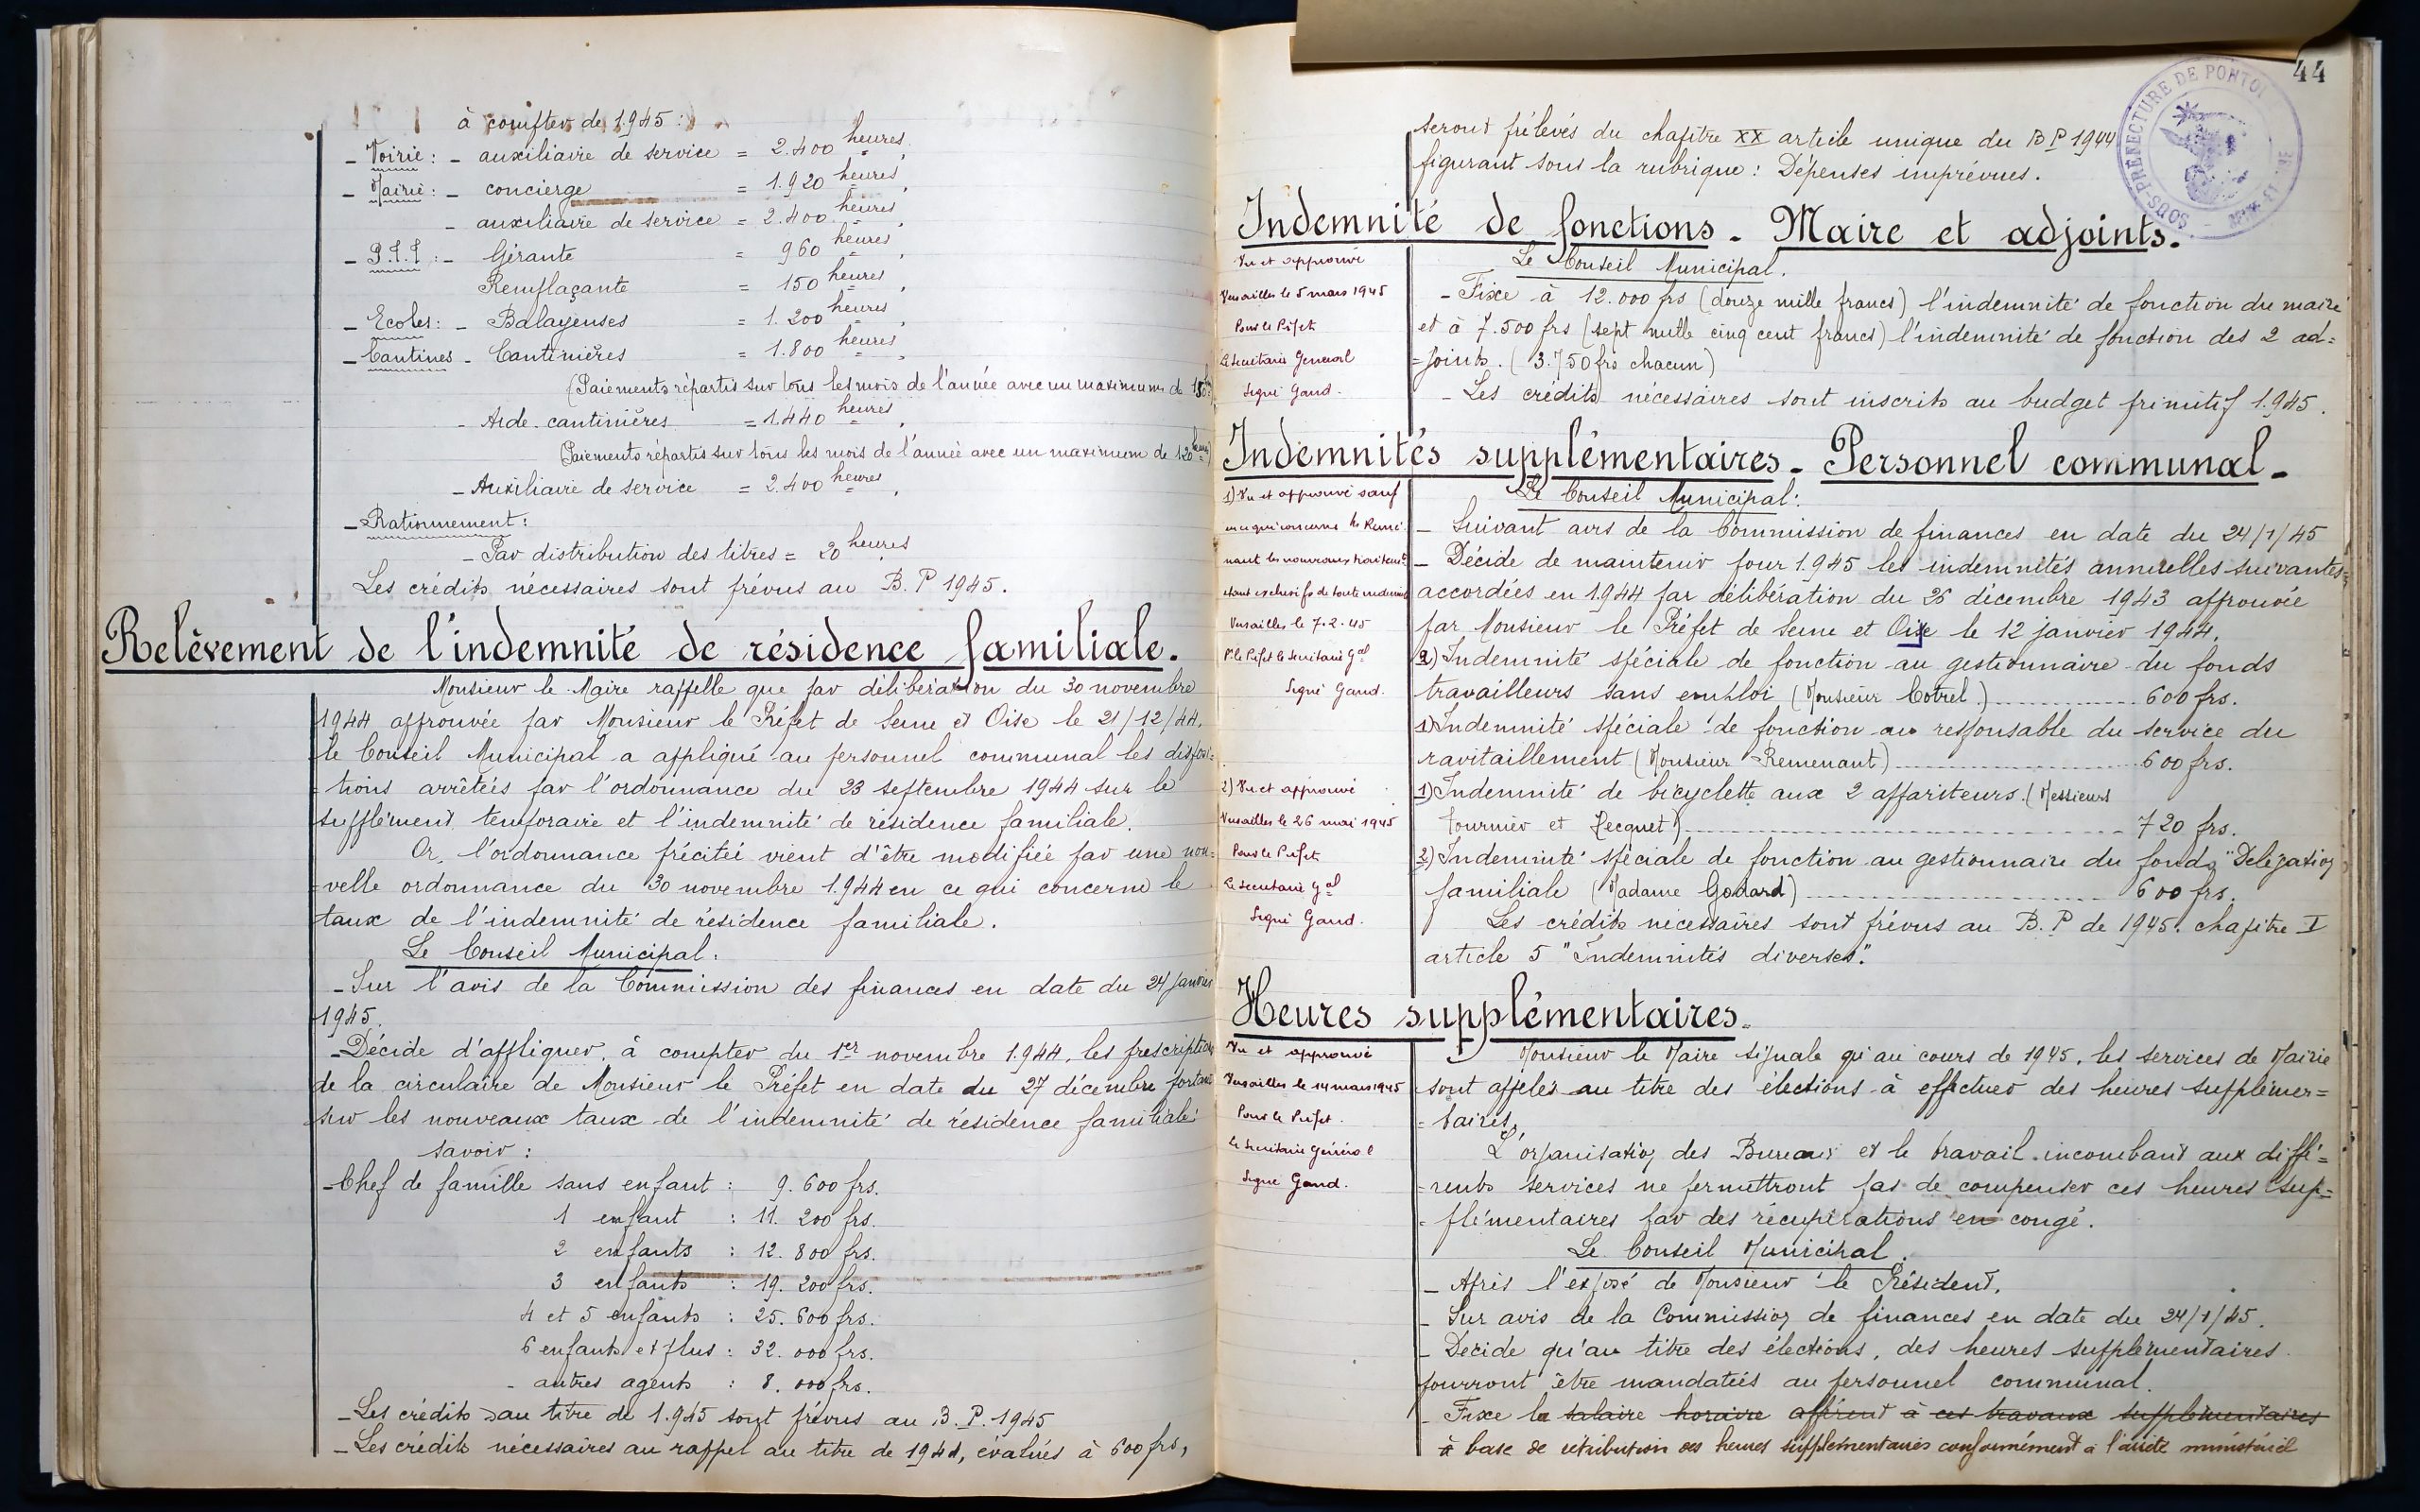 à compter de 1.945 :
- Voirie : - auxiliaire de service = 2.400 heures.
- Mairie : - concierge = 1.920 heures.
- auxiliaire de service = 2.400 heures.
- Gérante = 960 heures.
Remplaçante = 150 heures.
- Ecoles : - Balayeuses = 1.200 heures.
- Cantines - Cantinières = 1.800 heures.
(Paiements répartis sur tous les mois de l'année avec un maximum de
- Aide-cantinières = 1.440 heures.
(Paiements répartis sur tous les mois de l'année avec un maximum de 120 heures)
- Auxiliaire de service = 2.400 heures.
- Rationnement :
- Par distribution des titres = 20 heures
Les crédits nécessaires sont prévus au B.P 1945.
Relèvement de l'indemnité de résidence familiale.
Monsieur le Maire rappelle que par délibération du 30 novembre
1944 approuvée par Monsieur le Préfet de Seine et Oise le 21/12/44,
le Conseil Municipal a appliqué au personnel communal les disposi=
=tions arrêtées par l'ordonnance du 23 septembre 1944 sur le
supplément temporaire et l'indemnité de résidence familiale.
Or, l'ordonnance précitée vient d'être modifiée par une nou=
=velle ordonnance du 30 novembre 1.944 en ce qui concerne le
taux de l'indemnité de résidence familiale.
Le Conseil Municipal :
- Sur l'avis de la Commission des finances en date du 24 Janvier
1945.
- Décide d'appliquer, à compter du 1er novembre 1.944, les prescriptions
de la circulaire de Monsieur le Préfet en date du 27 décembre portant
sur les nouveaux taux de l'indemnité de résidence familiale
savoir :
- Chef de famille sans enfant : 9.600 frs.
1 enfant : 11.200 frs.
2 enfants : 12.800 frs.
3 enfants : 19.200 frs.
4 et 5 enfants : 25.600 frs.
6 enfants et plus : 32.000 frs.
- autres agents : 8.000 frs.
- Les crédits au titre de 1.945 sont prévus au B.P. 1945
- Les crédits nécessaires au rappel au titre de 1944, évalués à 600 frs,
44
SOUS-PRÉFECTURE DE PONTOI
seront prélevés du chapitre XX article unique du B P 1944
figurant sous la rubrique : Dépenses imprévues.
Indemnité de fonctions - Maire et adjoints.
Vu et approuvé
Versailles le 5 mars 1945
Pour le Préfet
Le Secrétaire Général
Signé Gand.
Le Conseil Municipal.
- Fixe à 12.000 frs (douze mille francs) l'indemnité de fonction du maire
et à 7.500 frs (sept mille cinq cent francs) l'indemnité de fonction des 2 ad=
=joints. (3.750 frs chacun)
- Les crédits nécessaires sont inscrits au budget primitif 1.945.
Indemnités supplémentaires - Personnel communal -
1) Vu et approuvé sauf
en ce qui concerne Mr Reme
nant les nouveaux traitemts
étant exclusifs de toute indemnité
Versailles le 7.2.45
Pr le Préfet le Secrétaire Gal
Signé Gand.
Le Conseil Municipal :
- Suivant avis de la Commission de finances en date du 24/1/45
- Décide de maintenir pour 1.945 les indemnités annuelles suivantes
accordées en 1.944 par délibération du 26 décembre 1943 approuvée
par Monsieur le Préfet de Seine et Oise le 12 janvier 1944.
2) Indemnité spéciale de fonction au gestionnaire du fonds
travailleurs sans emploi (Monsieur Cotrel.) 600 frs.
1) Indemnité spéciale de fonction au responsable du service du
ravitaillement (Monsieur Remenant) 600 frs.
2) Vu et approuvé
Versailles le 26 mai 1945
Pour le Préfet
Le Secrétaire Gal
Signé Gand.
1) Indemnité de bicyclette aux 2 appariteurs. (Messieurs
Tournier et Hecquet) 720 frs.
2) Indemnité spéciale de fonction au gestionnaire du fonds "Délégation
familiale (Madame Godard) 600 frs.
Les crédits nécessaires sont prévus au B.P de 1945. chapitre I
article 5 "Indemnités diverses".
Heures supplémentaires.
Vu et approuvé
Versailles le 14 mars 1945
Pour le Préfet.
Le Secrétaire Général
Signé Gand.
Monsieur le Maire signale qu'au cours de 1945, les services de Mairie
sont appelés au titre des élections à effectuer des heures supplémen=
=taires.
L'organisation des Bureaux et le travail incombant aux diffé=
=rents services ne permettront pas de compenser ces heures sup=
=plémentaires par des récupérations en congé.
Le Conseil Municipal.
- Après l'exposé de Monsieur le Président.
- Sur avis de la Commission de finances en date du 24/1/45.
- Décide qu'au titre des élections, des heures supplémentaires
pourront être mandatées au personnel communal.
- Fixe la salaire horaire afférent à ces travaux supplémentaires
à base de rétribution des heures supplémentaires conformément à l'arrêté ministériel